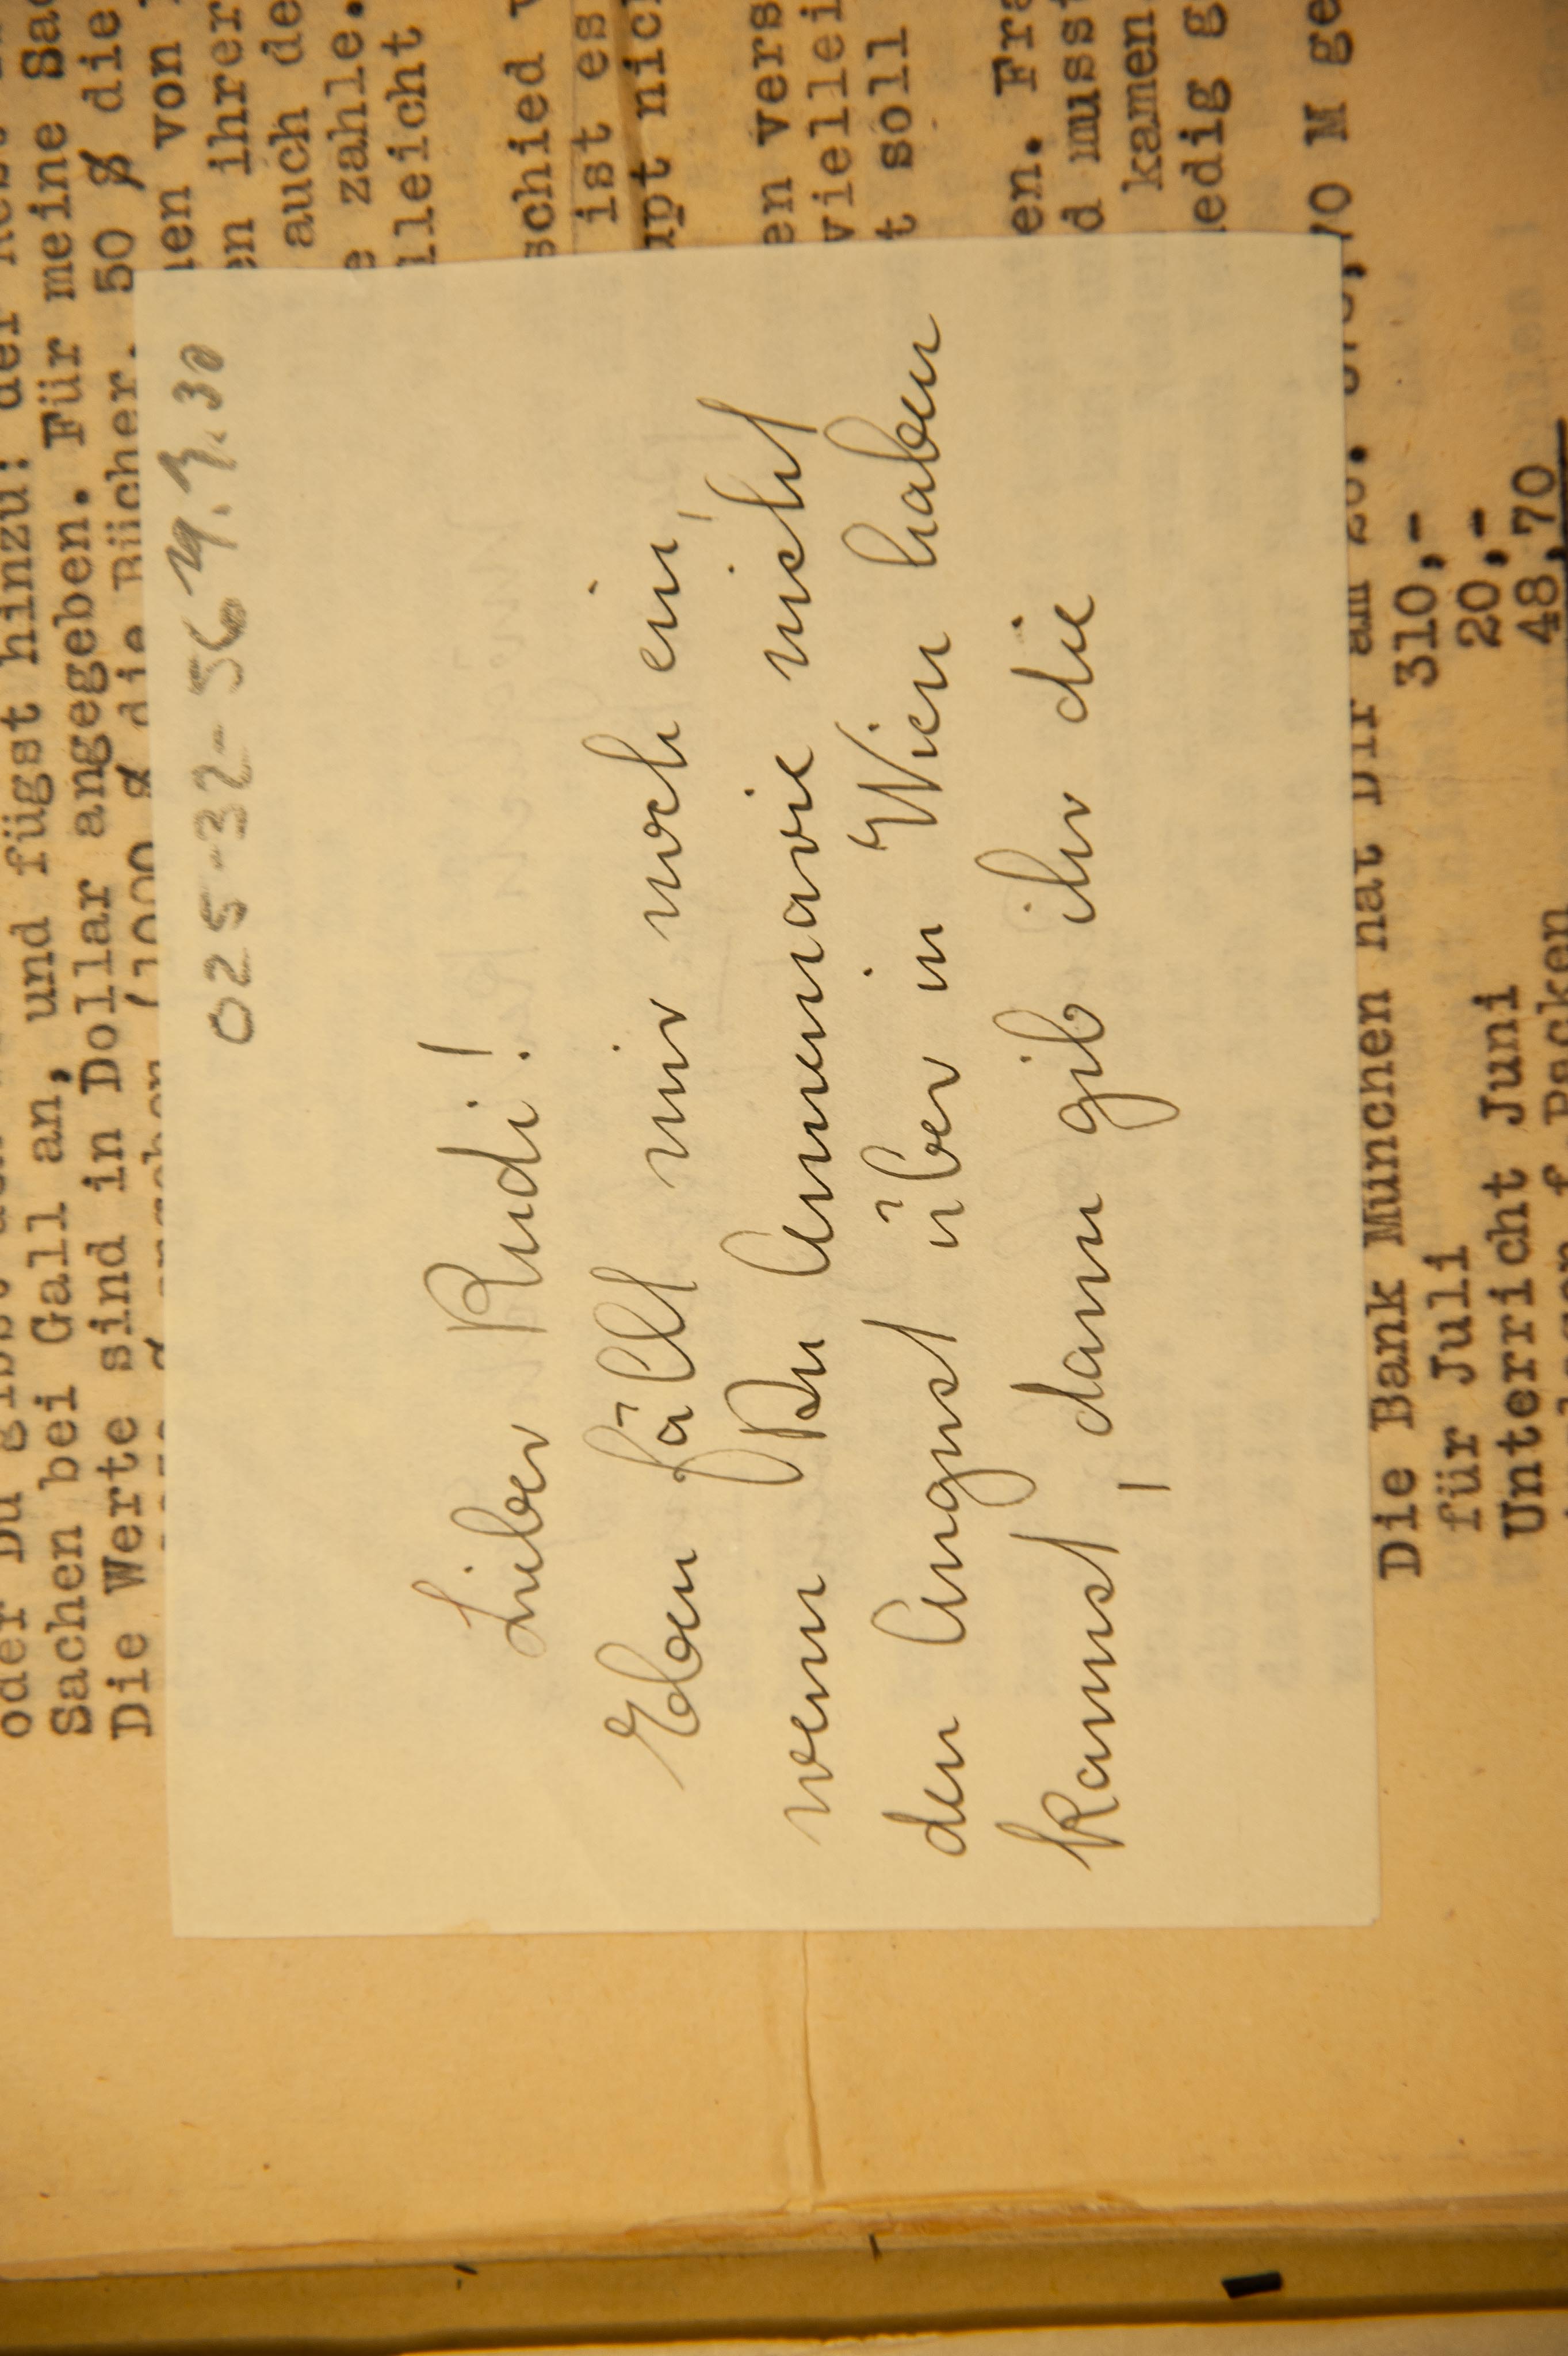 oder Du gibst
Sachen bei Gall an, und fügst hinzu: der
Die Werte sind in Dollar angegeben. Für meine Sac
50 % die
die Bücher
nen von
en ihrer
auch de
e zahle.
lleicht
schied v
ist es
upt nich
en vers
viellei
t soll
en. Fra
d musst
kamen
edig g
70 M ge
025-32-56
30
Lieber Rudi!
Eben fällt mir noch ein,
wenn Du Annemarie nicht
den August über in Wien haben
kannst, dann gib ihr die
Die Bank München hat Dir am
für Juli 310,-
Unterricht Juni 20,-
Packen 48,70